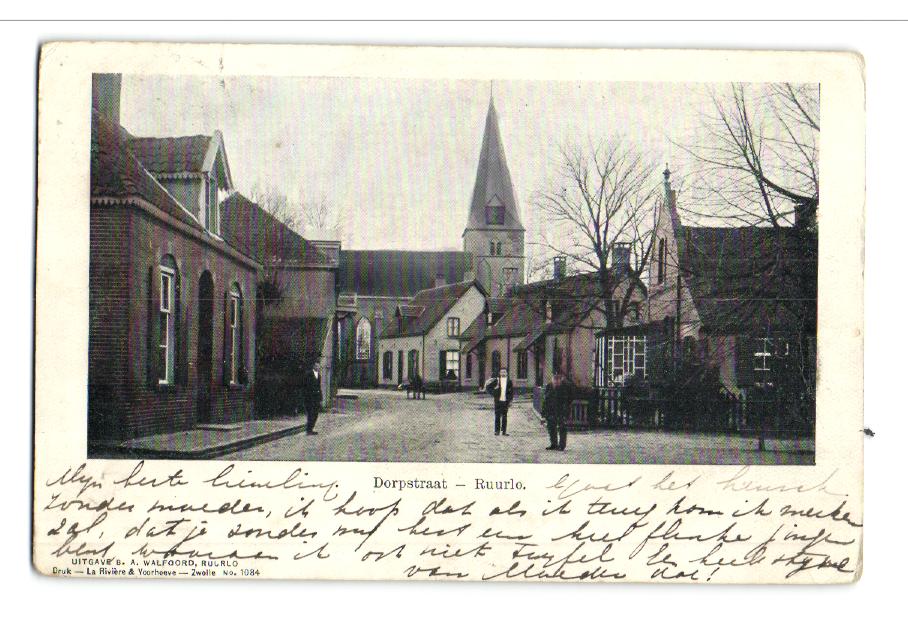 Dorpstraat – Ruurlo.
Mijn beste lieveling. Gaat het heusch
zonder moeder, ik hoop dat als ik terug kom ik merken
zal, dat je zonder mij best een heel flinke jongen
bent waaraan ik ook niet twijfel
van Moeder
UITGAVE B. A. WALFOORD, RUURLO
Druk — La Rivière & Voorhoeve — Zwolle No. 1084